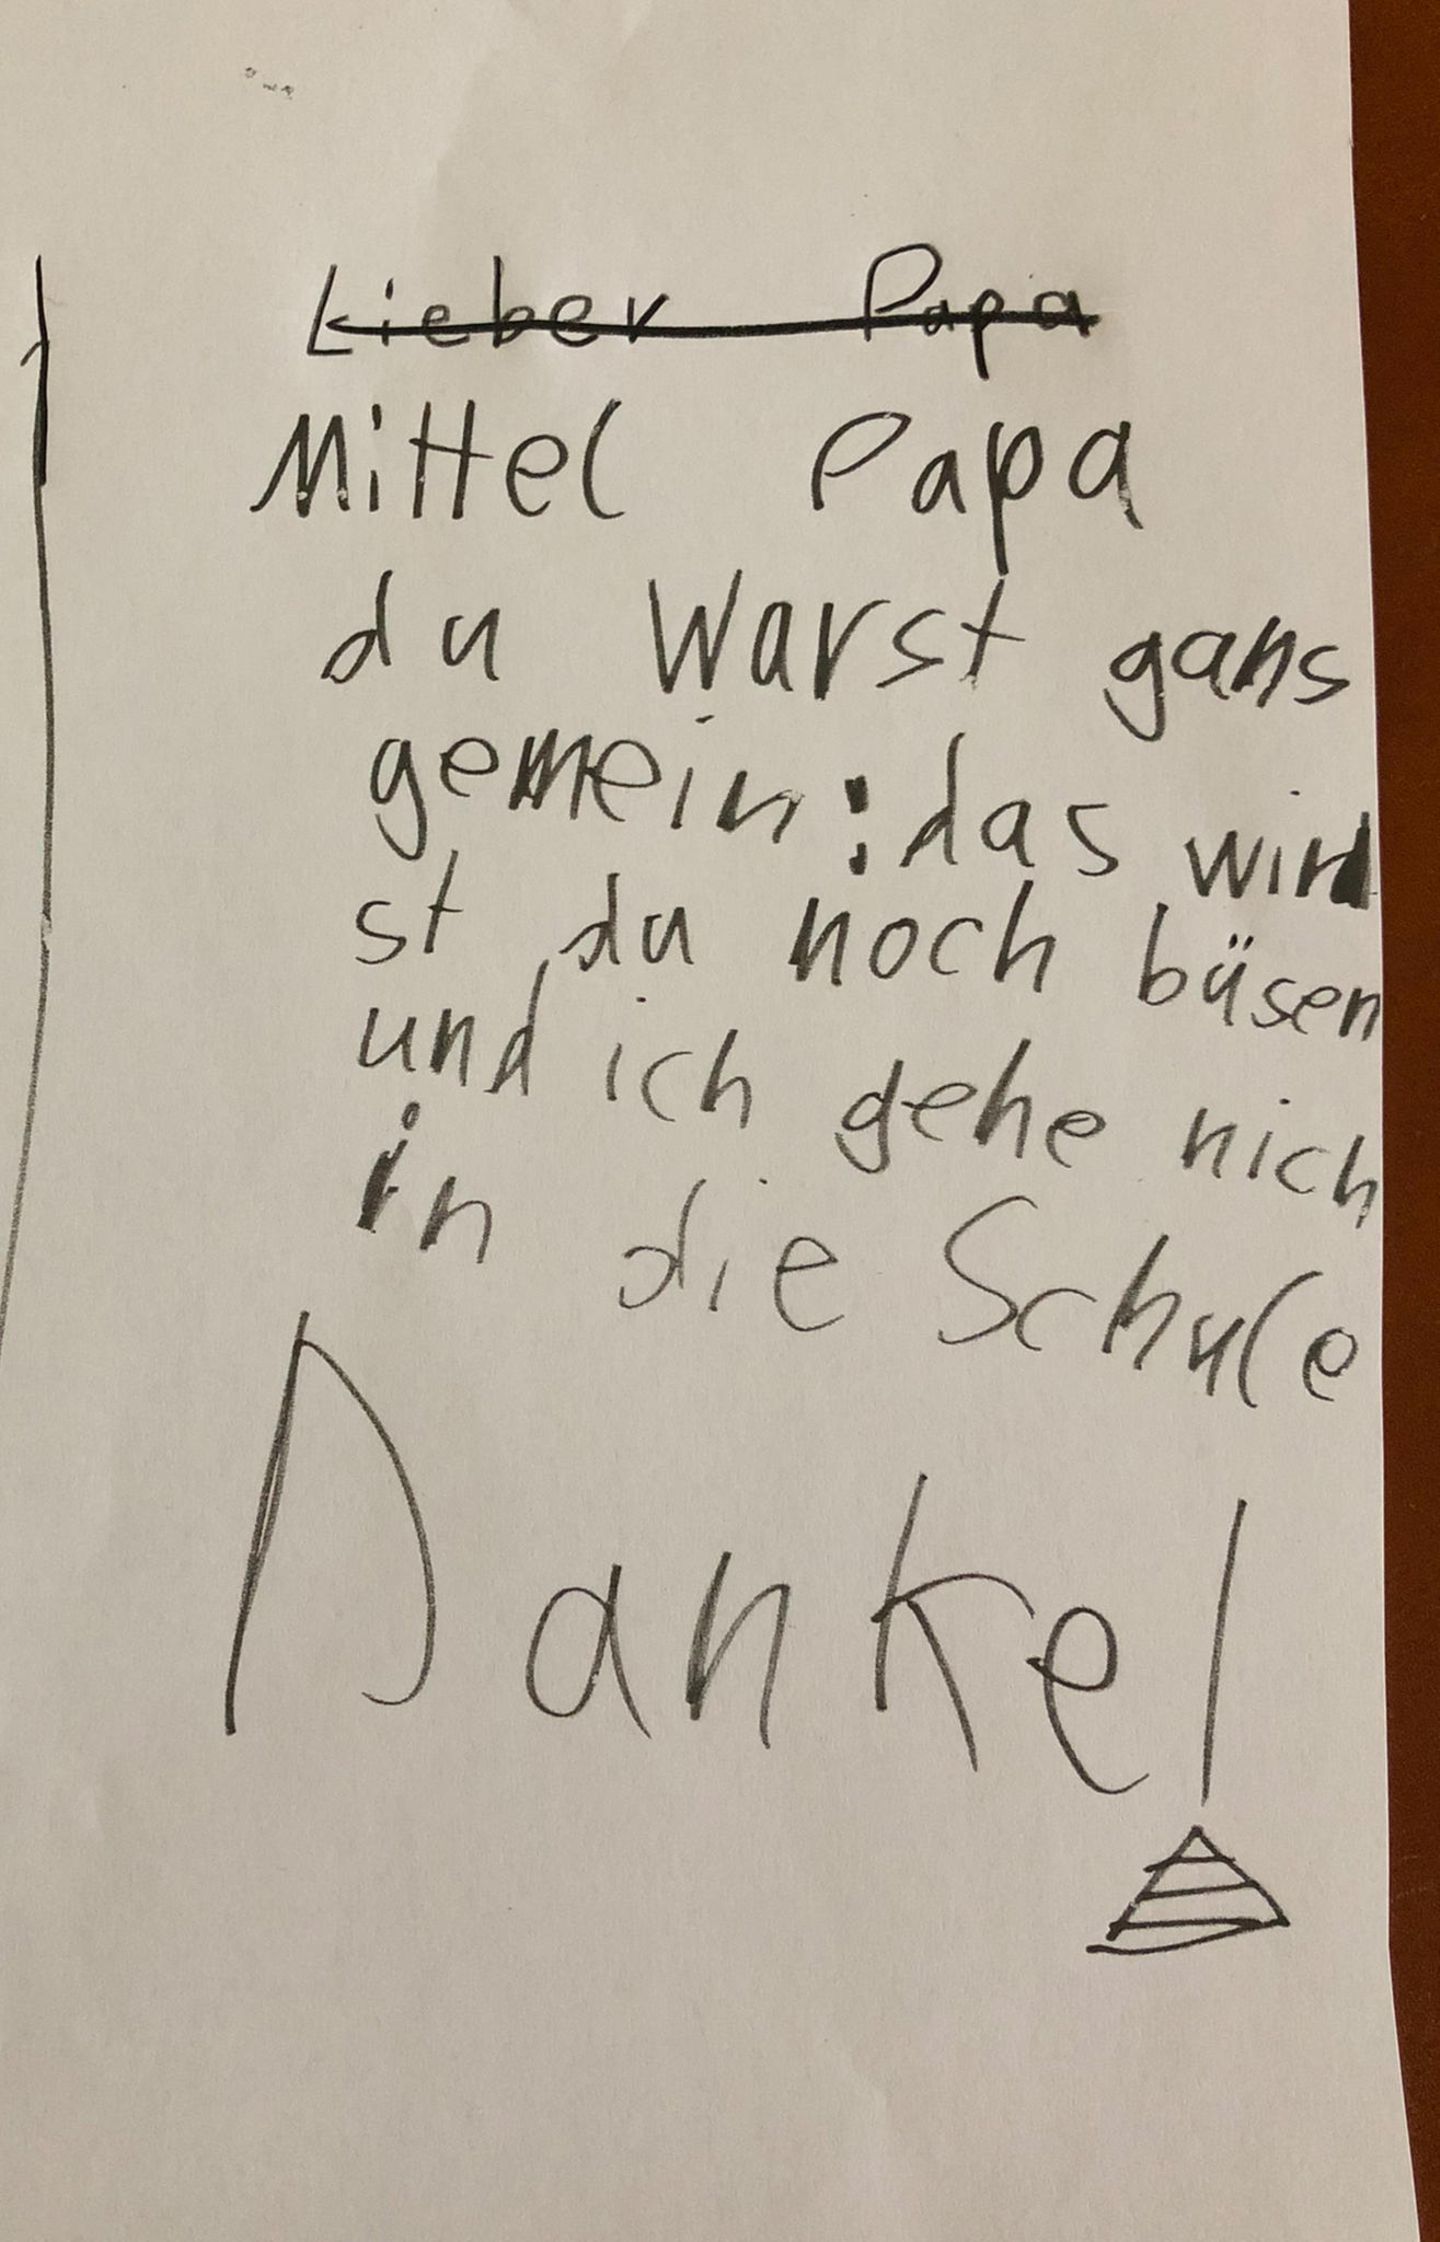 Lieber Papa
Mittel Papa
du warst gans
gemein: das wird
st du noch büsen
und ich gehe nich
in die Schule
Danke!